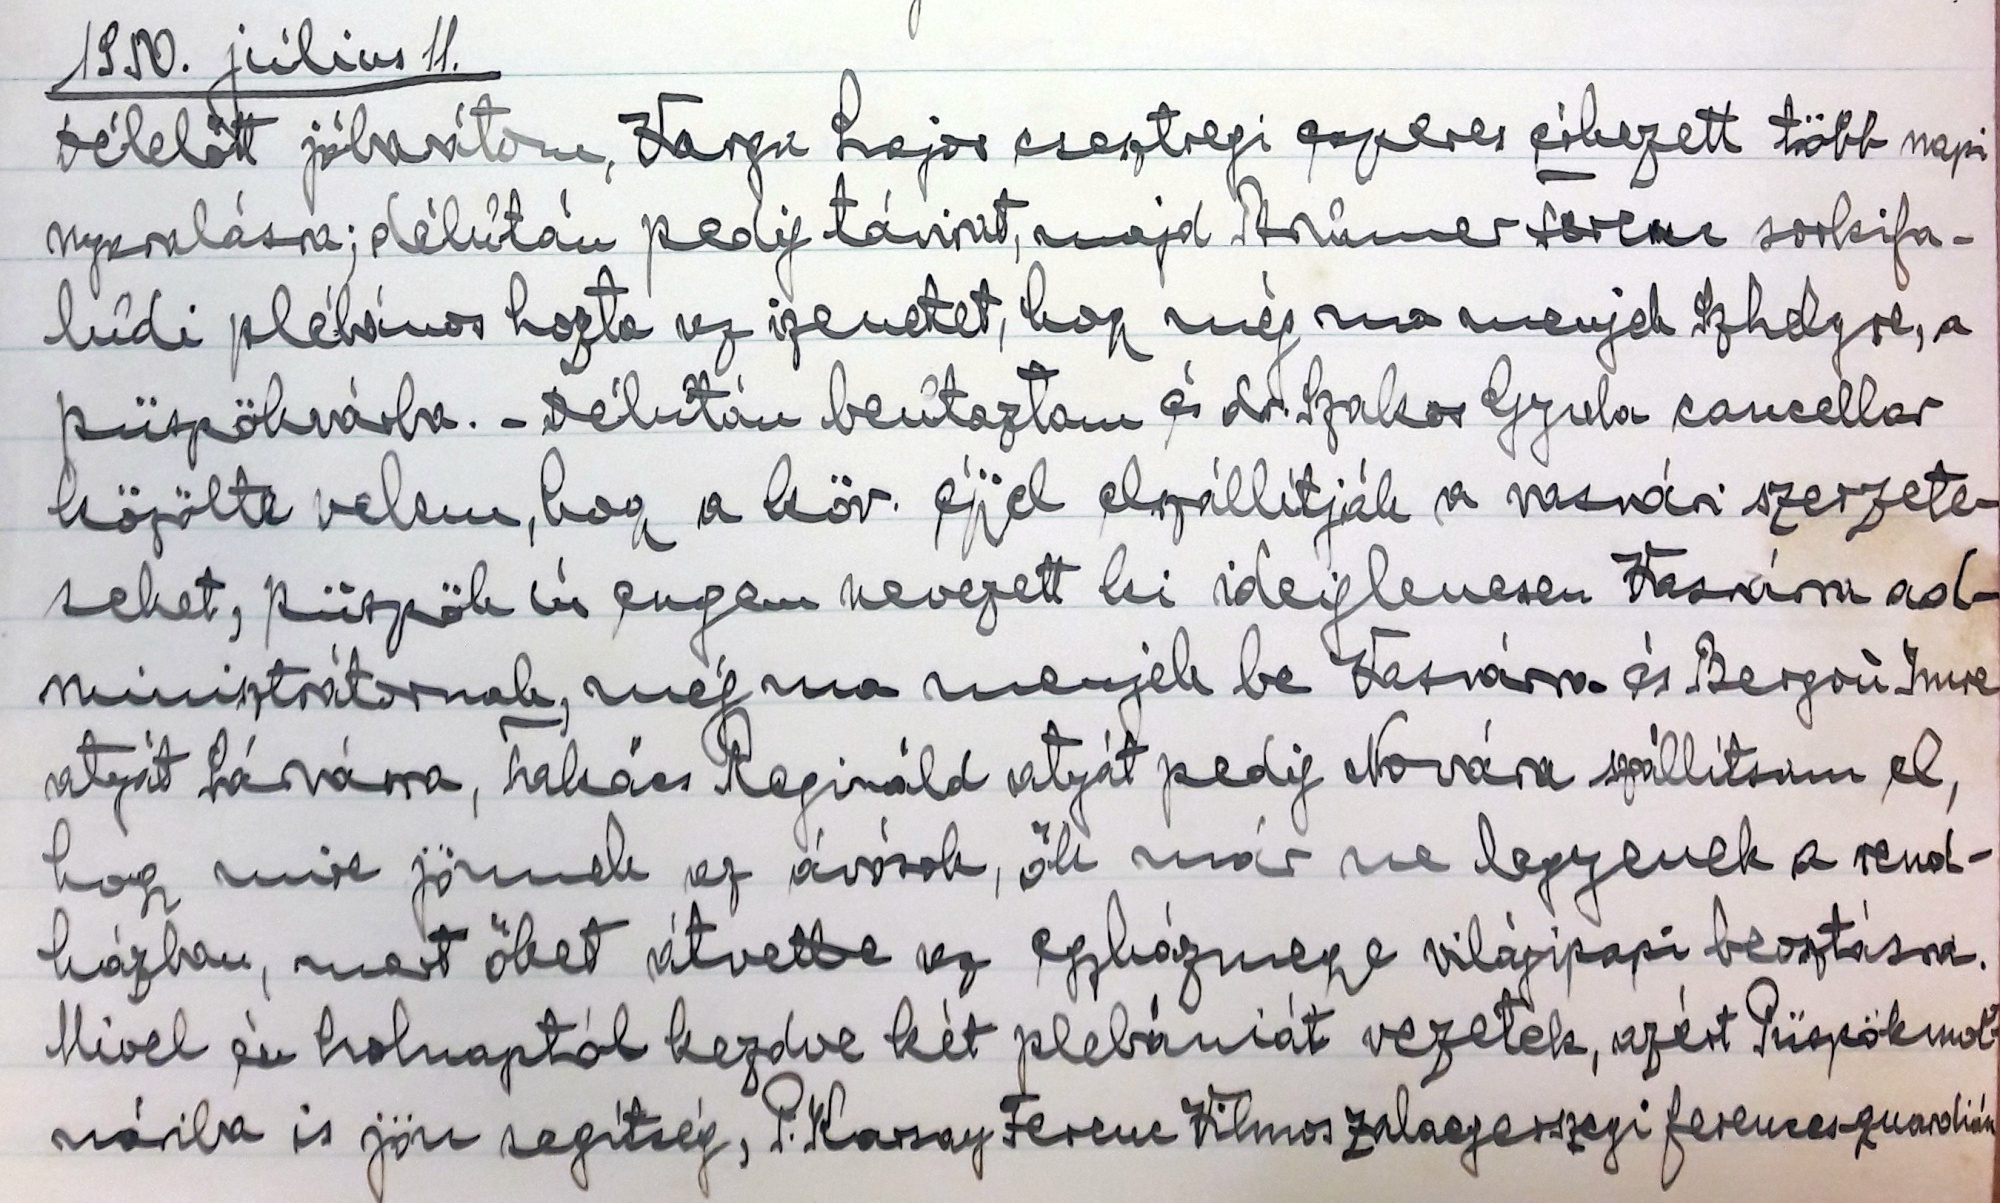 1950. július 11.
Délelőtt jóbarátom, Varga Lajos csesztregi esperes érkezett több napi
nyaralásra; délután pedig távirat, majd Brümmer Ferenc sorkifa-
lúdi plébános hozta az izenetet, hogy még ma menjek Szhelyre, a
püspökvárba. - Délután beútaztam és dr. Szakos Gyula cancellar
közölte velem, hogy a köv. éjjel elszállítják a vasvári szerzete-
seket, püspök úr engem nevezett ki ideiglenesen Vasvárra ad-
minisztrátornak, még ma menjek be Vasvárra és Bergou Imre
atyát Sárvárra, Takács Reginald atyát pedig Novára szállítsam el,
hogy mire jönnek az ávósok, ők már ne legyenek a rend-
házban, mert őket átvette az egyházmegye világipapi beosztásra.
Mivel én holnaptól kezdve két plebániát vezetek, azért Püspökmol-
náriba is jön segítség, P. Karsay Ferenc Vilmos zalaegerszegi ferences guardián